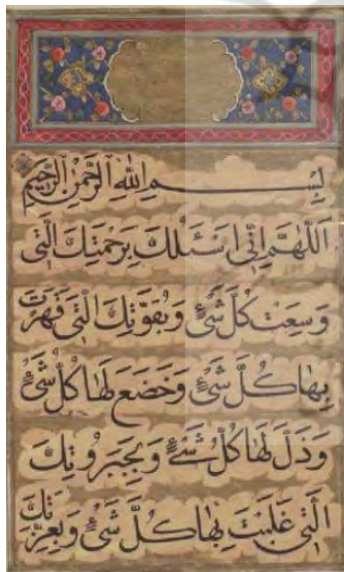 بِسْمِ اللّٰهِ الرَّحْمٰنِ الرَّحِيْمِ
اَللّٰهُمَّ اِنّٖى اَسْئَلُكَ بِرَحْمَتِكَ الَّتٖى
وَسِعَتْ كُلَّ شَىْءٍ وَ بِقُوَّتِكَ الَّتٖى قَهَرْتَ
بِهَا كُلَّ شَىْءٍ وَ خَضَعَ لَهَا كُلُّ شَىْءٍ
وَ ذَلَّ لَهَا كُلُّ شَىْءٍ وَ بِجَبَرُوتِكَ
الَّتٖى غَلَبْتَ بِهَا كُلَّ شَىْءٍ وَ بِعِزَّتِكَ